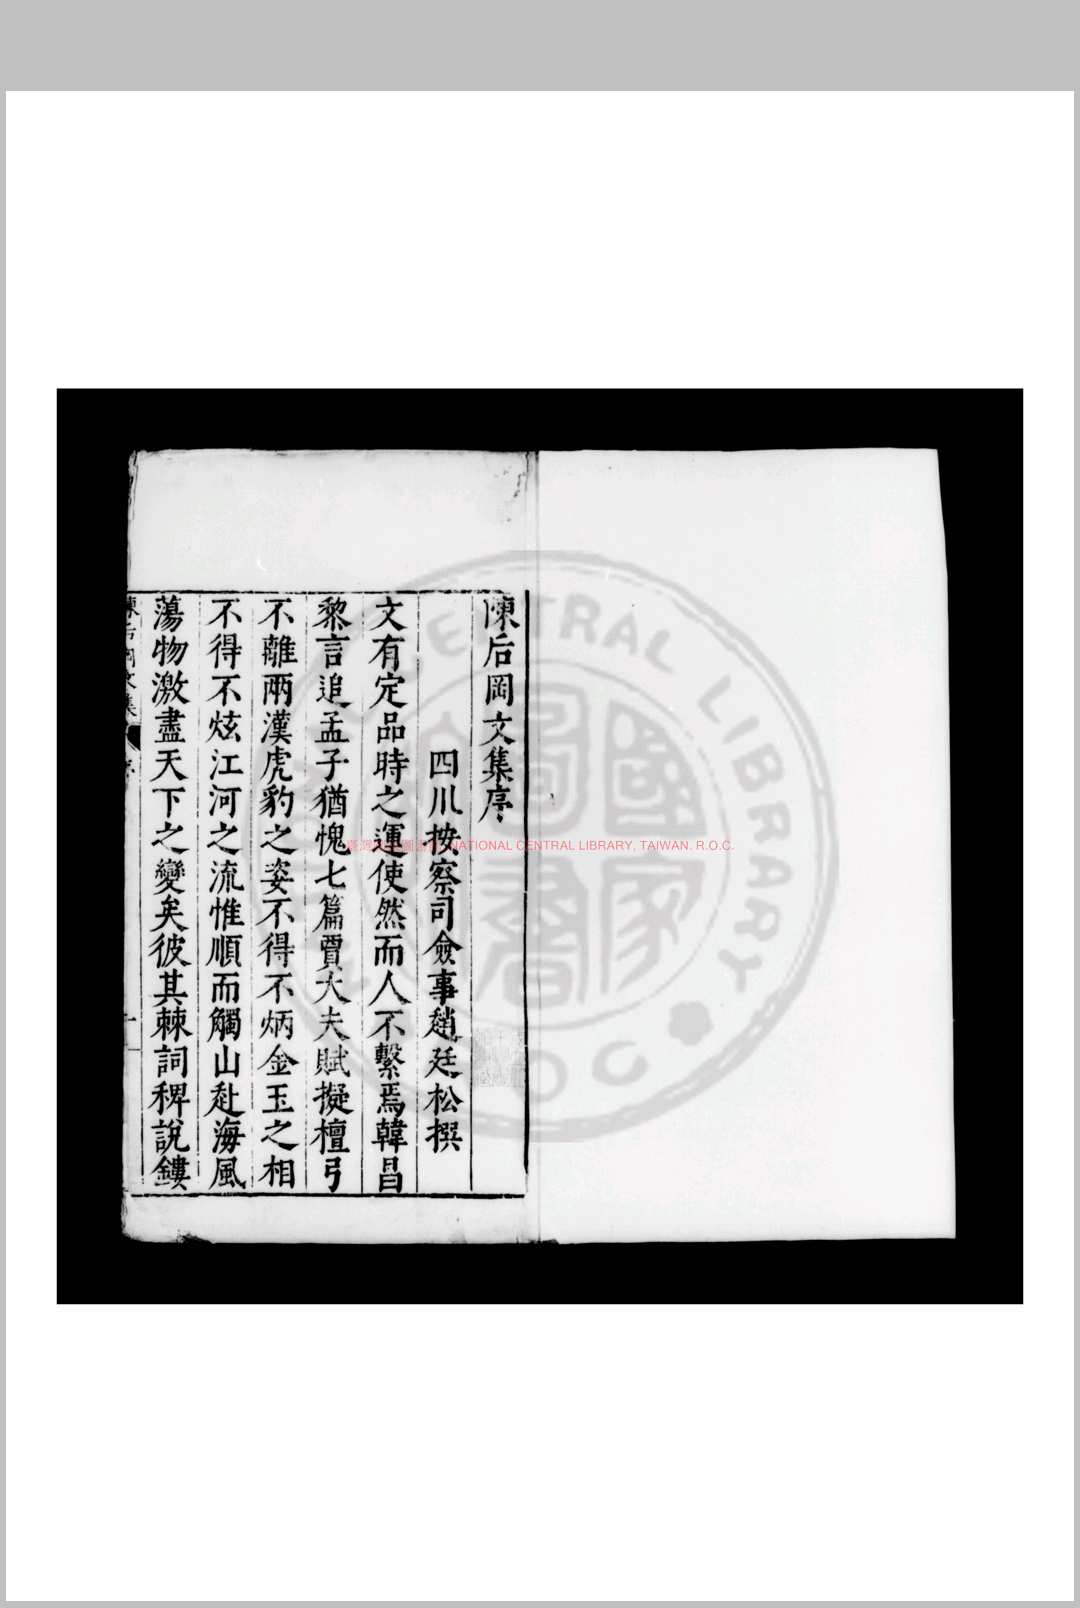 陳后岡文集序
四川按察司僉事趙廷松撰
文有定品時之運使然而人不繫焉韓昌
黎言追孟子猶愧七篇賈大夫賦擬檀弓
不離兩漢虎豹之姿不得不炳金玉之相
不得不炫江河之流惟順而觸山赴海風
蕩物激盡天下之變矣彼其棘詞稗說鏤
陳后岡文集
序
一
臺灣國家圖書館 NATIONAL CENTRAL LIBRARY, TAIWAN. R.O.C.
國家圖書
CENTRAL LIBRARY
ROC